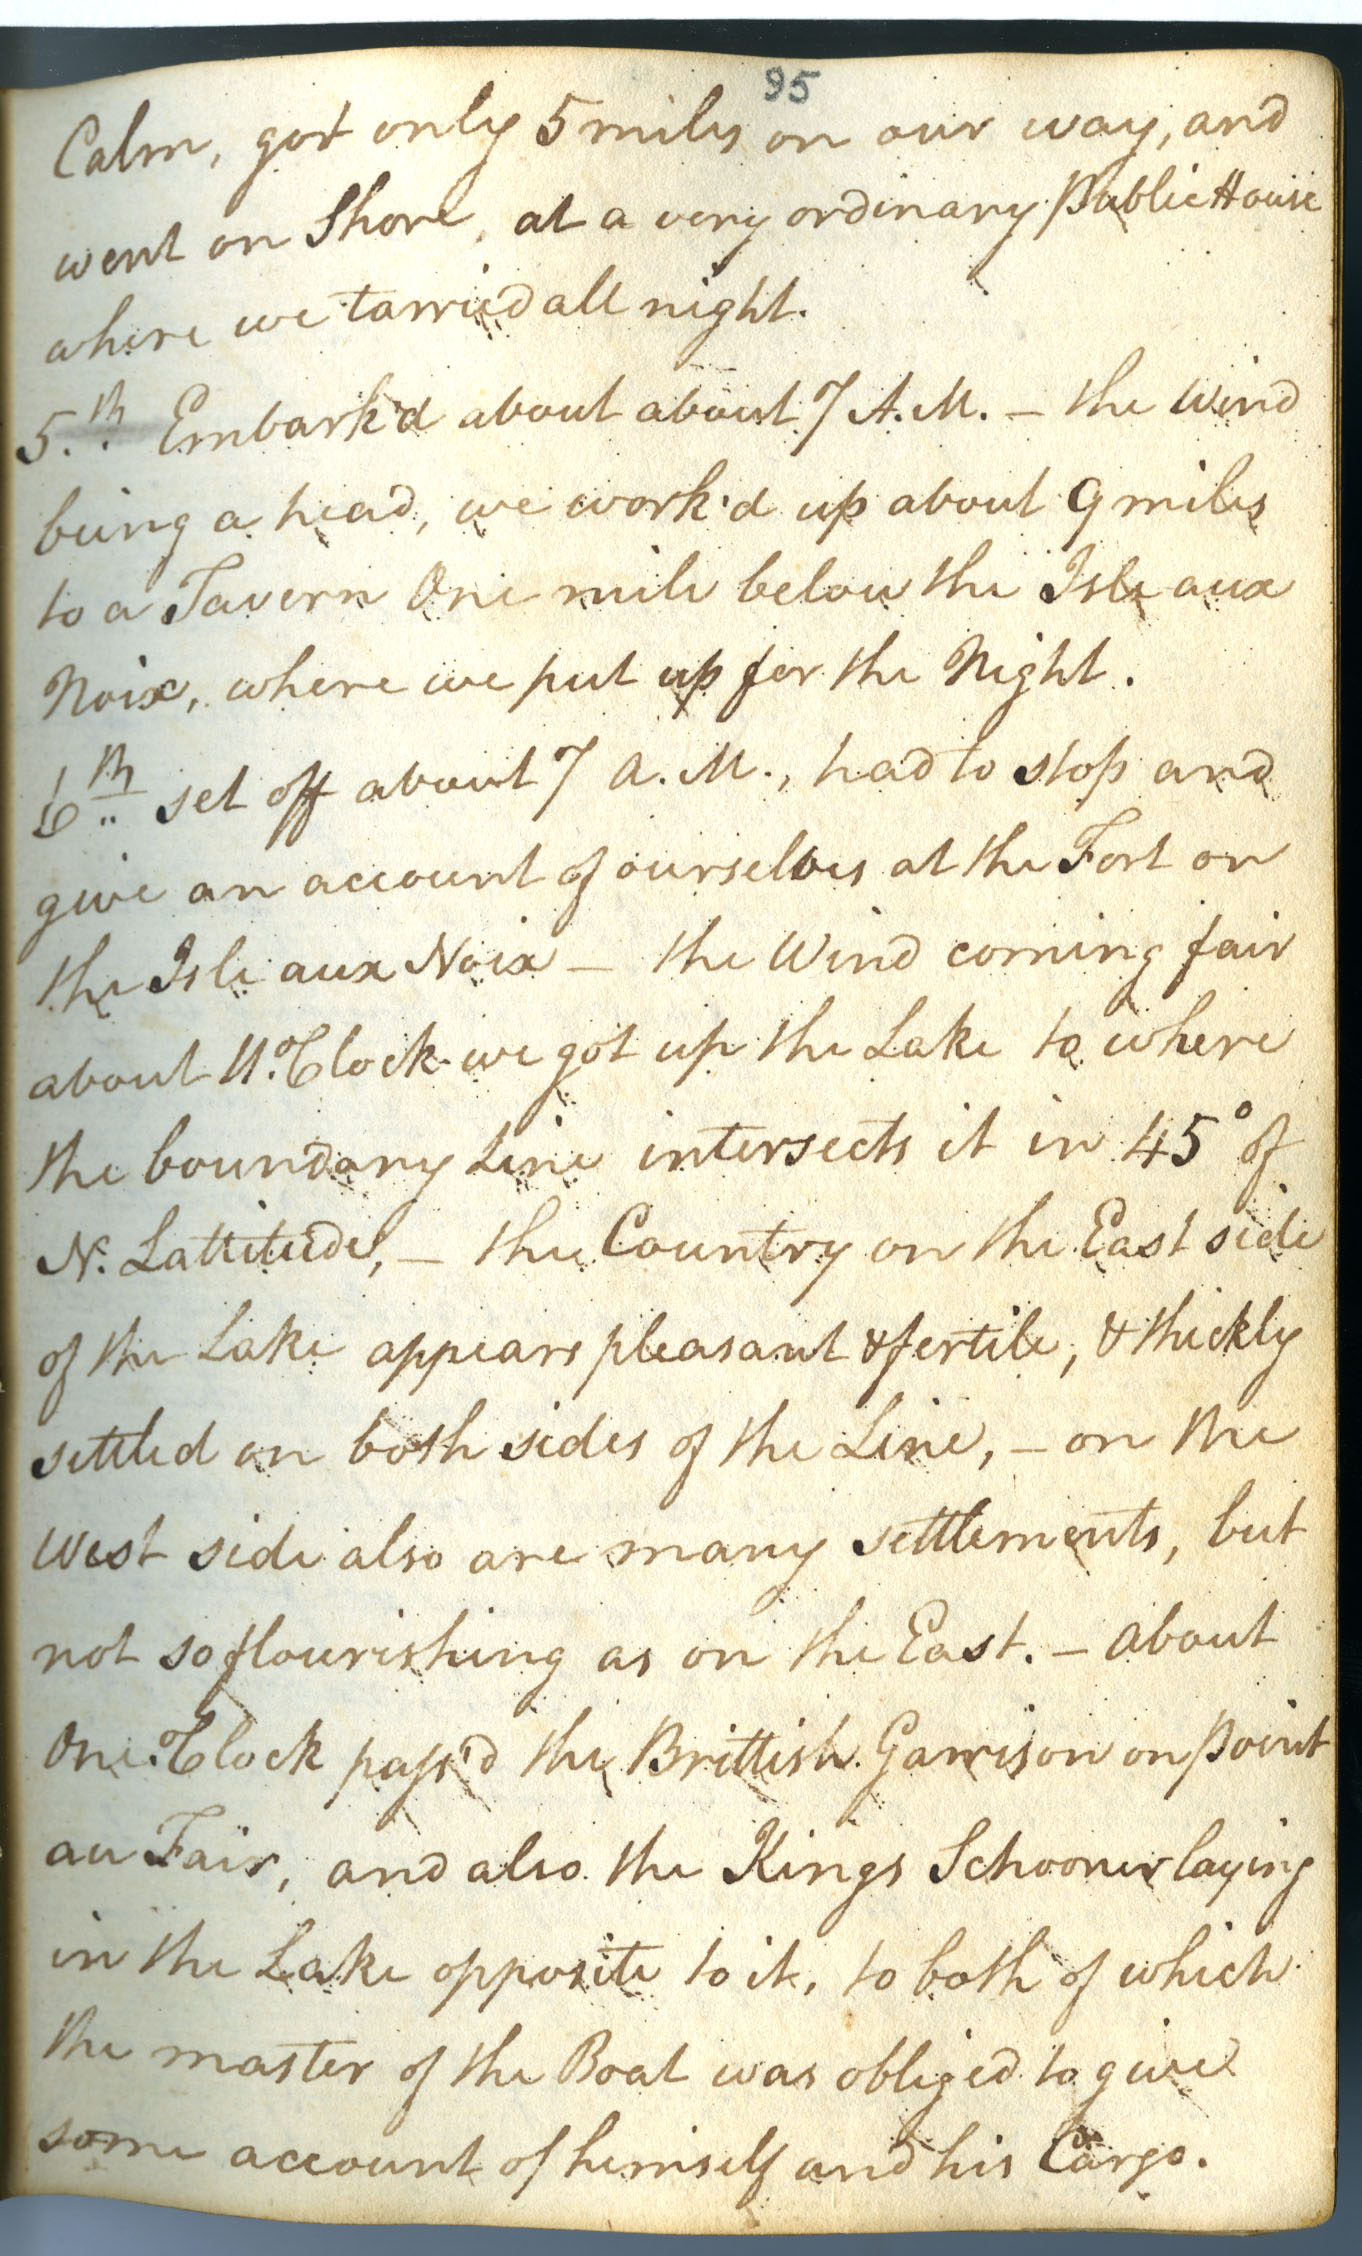 95
Calm, got only 5 miles on our way, and
went on Shore, at a very ordinary Public House
where we tarried all night.
5.th Embark'd about about 7 A.M. – the Wind
being a head, we work'd up about 9 miles
to a Tavern One mile below the Isle aux
Noix, where we put up for the Night.
6th set off about 7 A.M., had to stop and
give an account of ourselves at the Fort on
the Isle aux Noix – the Wind coming fair
about 11 o'Clock we got up the Lake to where
the boundary Line intersects it in 45° of
N. Lattitude, – the Country on the East side
of the Lake appears pleasant & fertile, & thickly
settled on both sides of the Line, – on the
West side also are many settlements, but
not so flourishing as on the East. – about
One o'Clock pass'd the Brittish Garrison on Point
au Fair, and also the Kings Schooner laying
in the Lake opposite to it, to both of which
the master of the Boat was obliged to give
some account of himself and his Cargo.